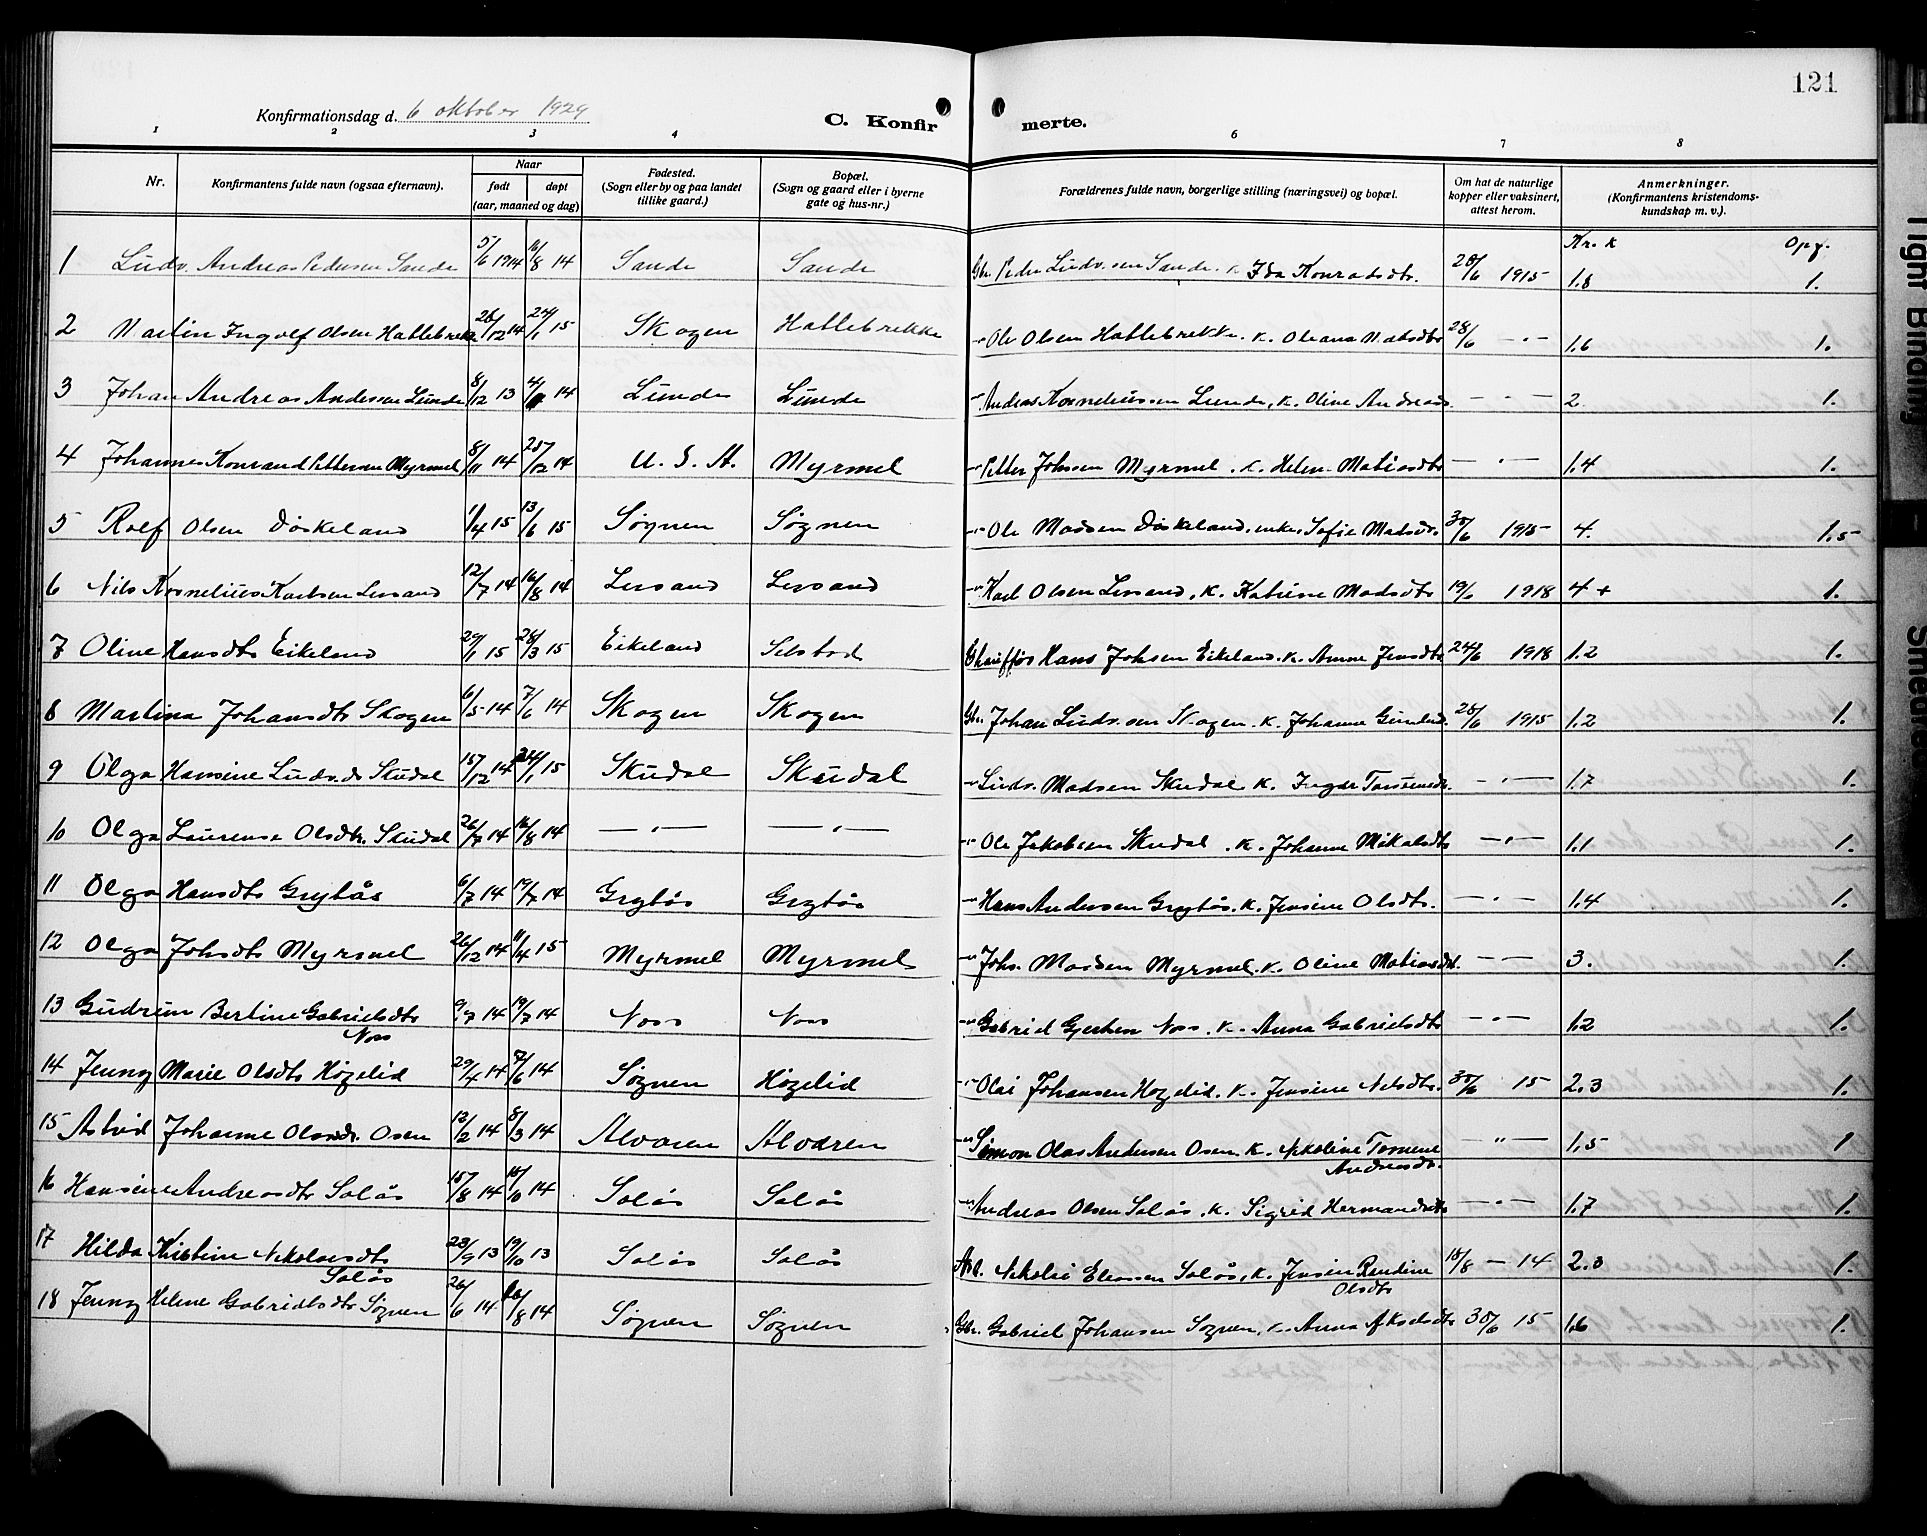 121
Konfirmationsdag d. 6 oktober 1929
C. Konfirmerte.
1 2 3 4 6 7 8
Nr. Konfirmantens fulde navn (ogsaa efternavn). Naar født døpt (aar, maaned og dag) Fødested. (Sogn eller by og paa landet tillike gaard.) Bopæl. (Sogn og gaard eller i byerne gate og hus-nr.) Forældrenes fulde navn, borgerlige stilling (næringsvei) og bopæl. Om hat de naturlige kopper eller vaksinert, attest herom. Anmerkninger. (Konfirmantens kristendoms-kundskap m. v.).
Kr. k Opf.
1 Ludv. Andreas Pedersen Sande 5/6 1914 16/8 14 Sande Sande Gbr. Peder Ludv.sen Sande. K. Ida Konradsdtr. 28/6 1915 1.8 1.
2 Martin Ingolf Olsen Hatlebrekke 26/12 14 24/1 15 Skogen Hatlebrekke -"- Ole Olsen Hatlebrekke. K. Oleana Matsdtr 28/6 -"- 1.6 1.
3 Johan Andreas Andersen Lunde 8/12 13 14 Lunde Lunde -"- Andreas Korneliussen Lunde, K. Oline Andreasd. -"- 2. 1.
4 Johannes Konrand Pettersen Myrmel 8/11 14 25/12 14 U. S. A. Myrmel -"- Petter Johssen Myrmel. K. Helene Matiasdtr -"- 1.4 1.
5 Rolf Olsen Døskeland 11/4 15 13/6 15 Søgnen Søgnen -"- Ole Madsen Døskeland, enke, Sofie Madsdr. 30/6 1915 4. 1.5
6 Nils Kornelius Karlsen Lersand 12/7 14 16/8 14 Lersand Lersand -"- Karl Olsen Lersand, K. Katrine Madsdtr 19/6 1918 4+ 1.
7 Oline Hansdtr Eikeland 29/1 15 28/3 15 Eikeland Selstad Chauffør Hans Johsen Eikeland. K. Anne Jensdtr 24/6 1918 1.2 1.
8 Martina Johansdtr Skogen 6/5 14 7/6 14 Skogen Skogen Gbr. Johan Ludv.sen Skogen. K. Johanne 28/6 1915 1.2 1.
9 Olga Hansine Ludv.d. Skudal 15/12 14 24/1 15 Skudal Skudal -"- Ludv. Madsen Skudal K. Inger -"- 1.7 1.
10 Olga Laurense Olsdtr. Skudal 26/7 14 16/8 14 -"- -"- -"- Ole Jakobsen Skudal. K. Johanne Mikalsdtr -"- 1.1 1.
11 Olga Hansdtr Grytås 6/7 14 19/7 14 Grytås Grytås -"- Hans Andersen Grytås. K. Jensine Olsdtr. -"- 1.4 1.
12 Olga Johsdtr Myrmel 26/12 14 11/4 15 Myrmel Myrmel -"- Johs. Madsen Myrmel. K. Oline Matiasdtr. -"- 3. 1.
13 Gudrun Bertine Gabrielsdtr 9/7 14 19/7 14 Noss Noss -"- Gabriel Gjertsen Noss. K. Anna Gabrielsdtr -"- 1.2 1.
Noss
14 Jenny Marie Olsdtr Høgelid 29/4 14 7/6 14 Søgnen Høgelid -"- Olai Johansen Høgelid. K. Jensine Nilsdtr. 30/6 15 2.3 1.
15 Astrid Johanne Olsendr. Osen 13/2 14 8/3 14 Alvøren Alvøren -"- Simon Olas Andersen Osen K. Nikoline Tomine -"- 1.5 1
Andreasdr.
16 Hansine Andreasdtr Solås 15/8 14 18/10 14 Solås Solås -"- Andreas Olsen Solås, K. Sigrid Hermandsdtr -"- 1.7 1.
17 Hilda Kristine Nikolaisdtr 23/9 13 19/10 13 Solås Solås Arb. Nikolai Eliassen Solås, K. Jensine Rendine 18/8 - 14 2.3 1.
Solås Olsdtr
18 Jenny Helene Gabrielsdtr Søgnen 26/6 14 16/8 14 Søgnen Søgnen Gbr. Gabriel Johansen Søgnen, K. Anna Akseldtr 30/6 15 1.6 1.
Tight Binding